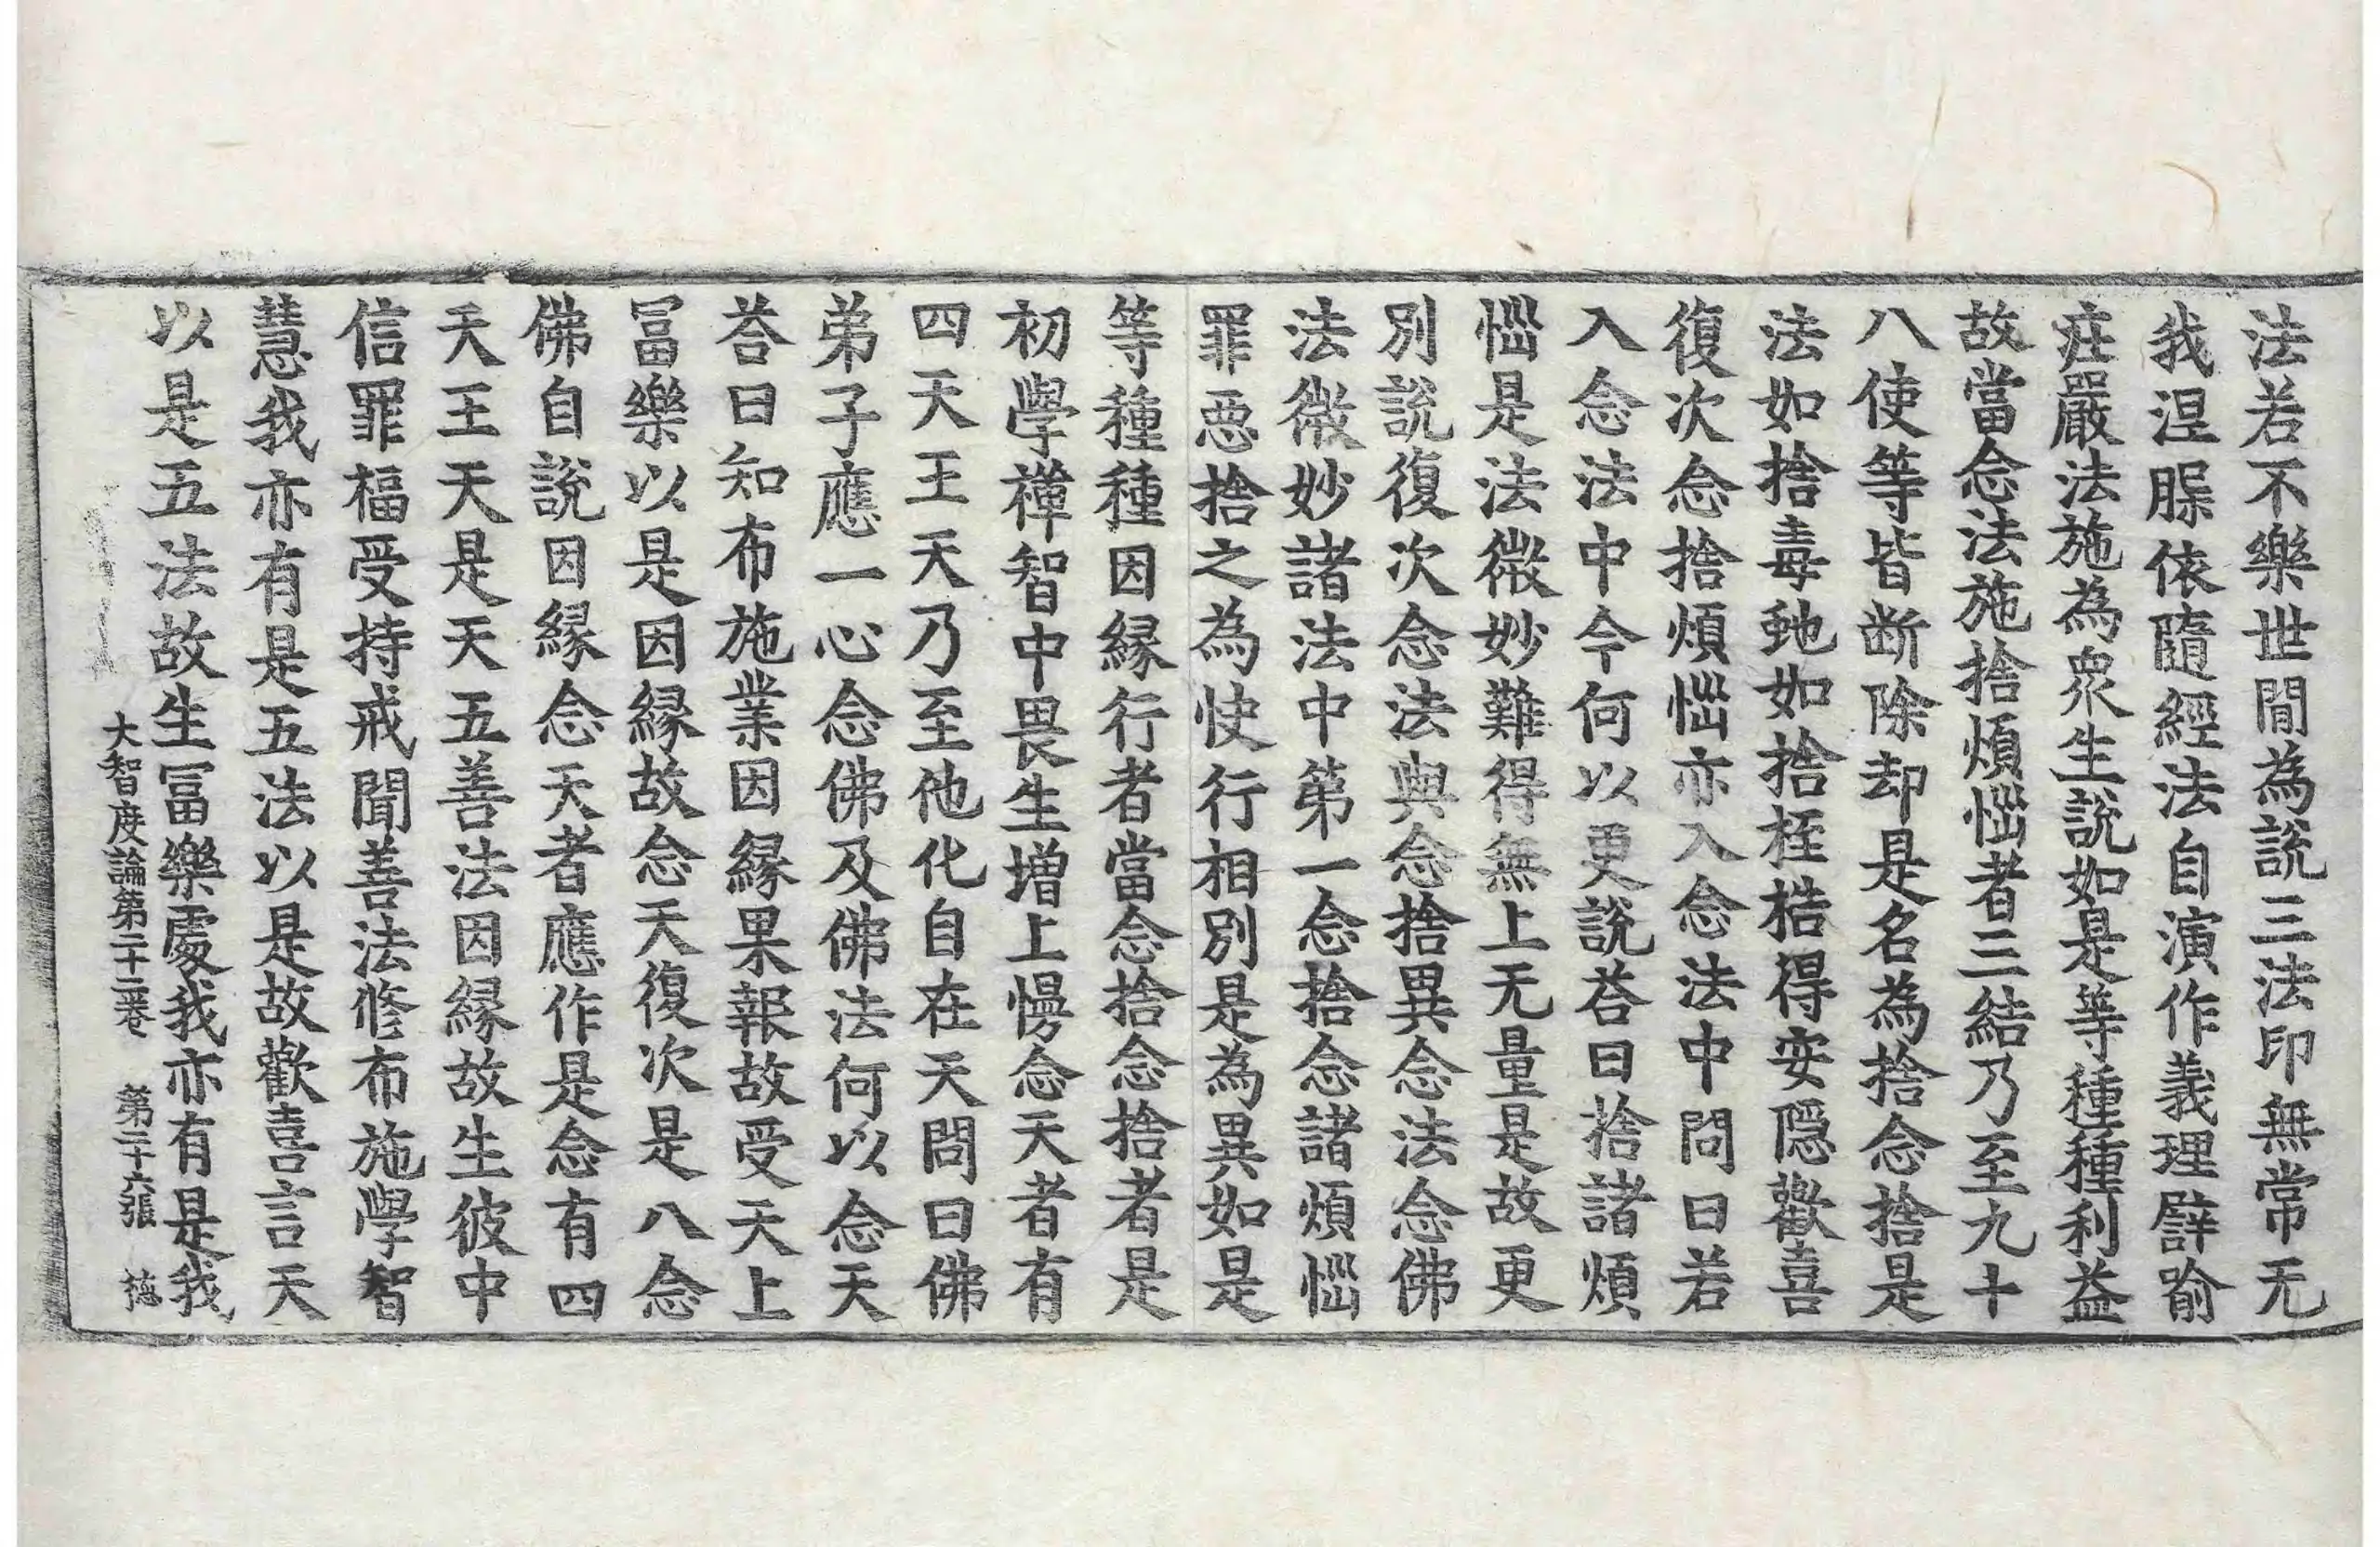 法若不樂世間為說三法印無常无
我涅槃依隨經法自演作義理譬喻
庄嚴法施為衆生說如是等種種利益
故當念法施捨煩惱者三結乃至九十
八使等皆断除却是名為捨念捨是
法如捨毒虵如捨桎梏得安隱歡喜
復次念捨煩惱亦入念法中問曰若
入念法中今何以更說荅曰捨諸煩
惱是法微妙難得無上无量是故更
別說復次念法與念捨異念法念佛
法微妙諸法中第一念捨念諸煩惱
罪惡捨之為快行相別是為異如是
等種種因縁行者當念捨念捨者是
初學禪智中畏生增上慢念天者有
四天王天乃至他化自在天問曰佛
弟子應一心念佛及佛法何以念天
荅曰知布施業因縁果報故受天上
冨樂以是因縁故念天復次是八念
佛自說因縁念天者應作是念有四
天王天是天五善法因縁故生彼中
信罪福受持戒聞善法修布施學智
慧我亦有是五法以是故歡喜言天
以是五法故生冨樂處我亦有是我
大智度論第二十二卷　第二十六張　德